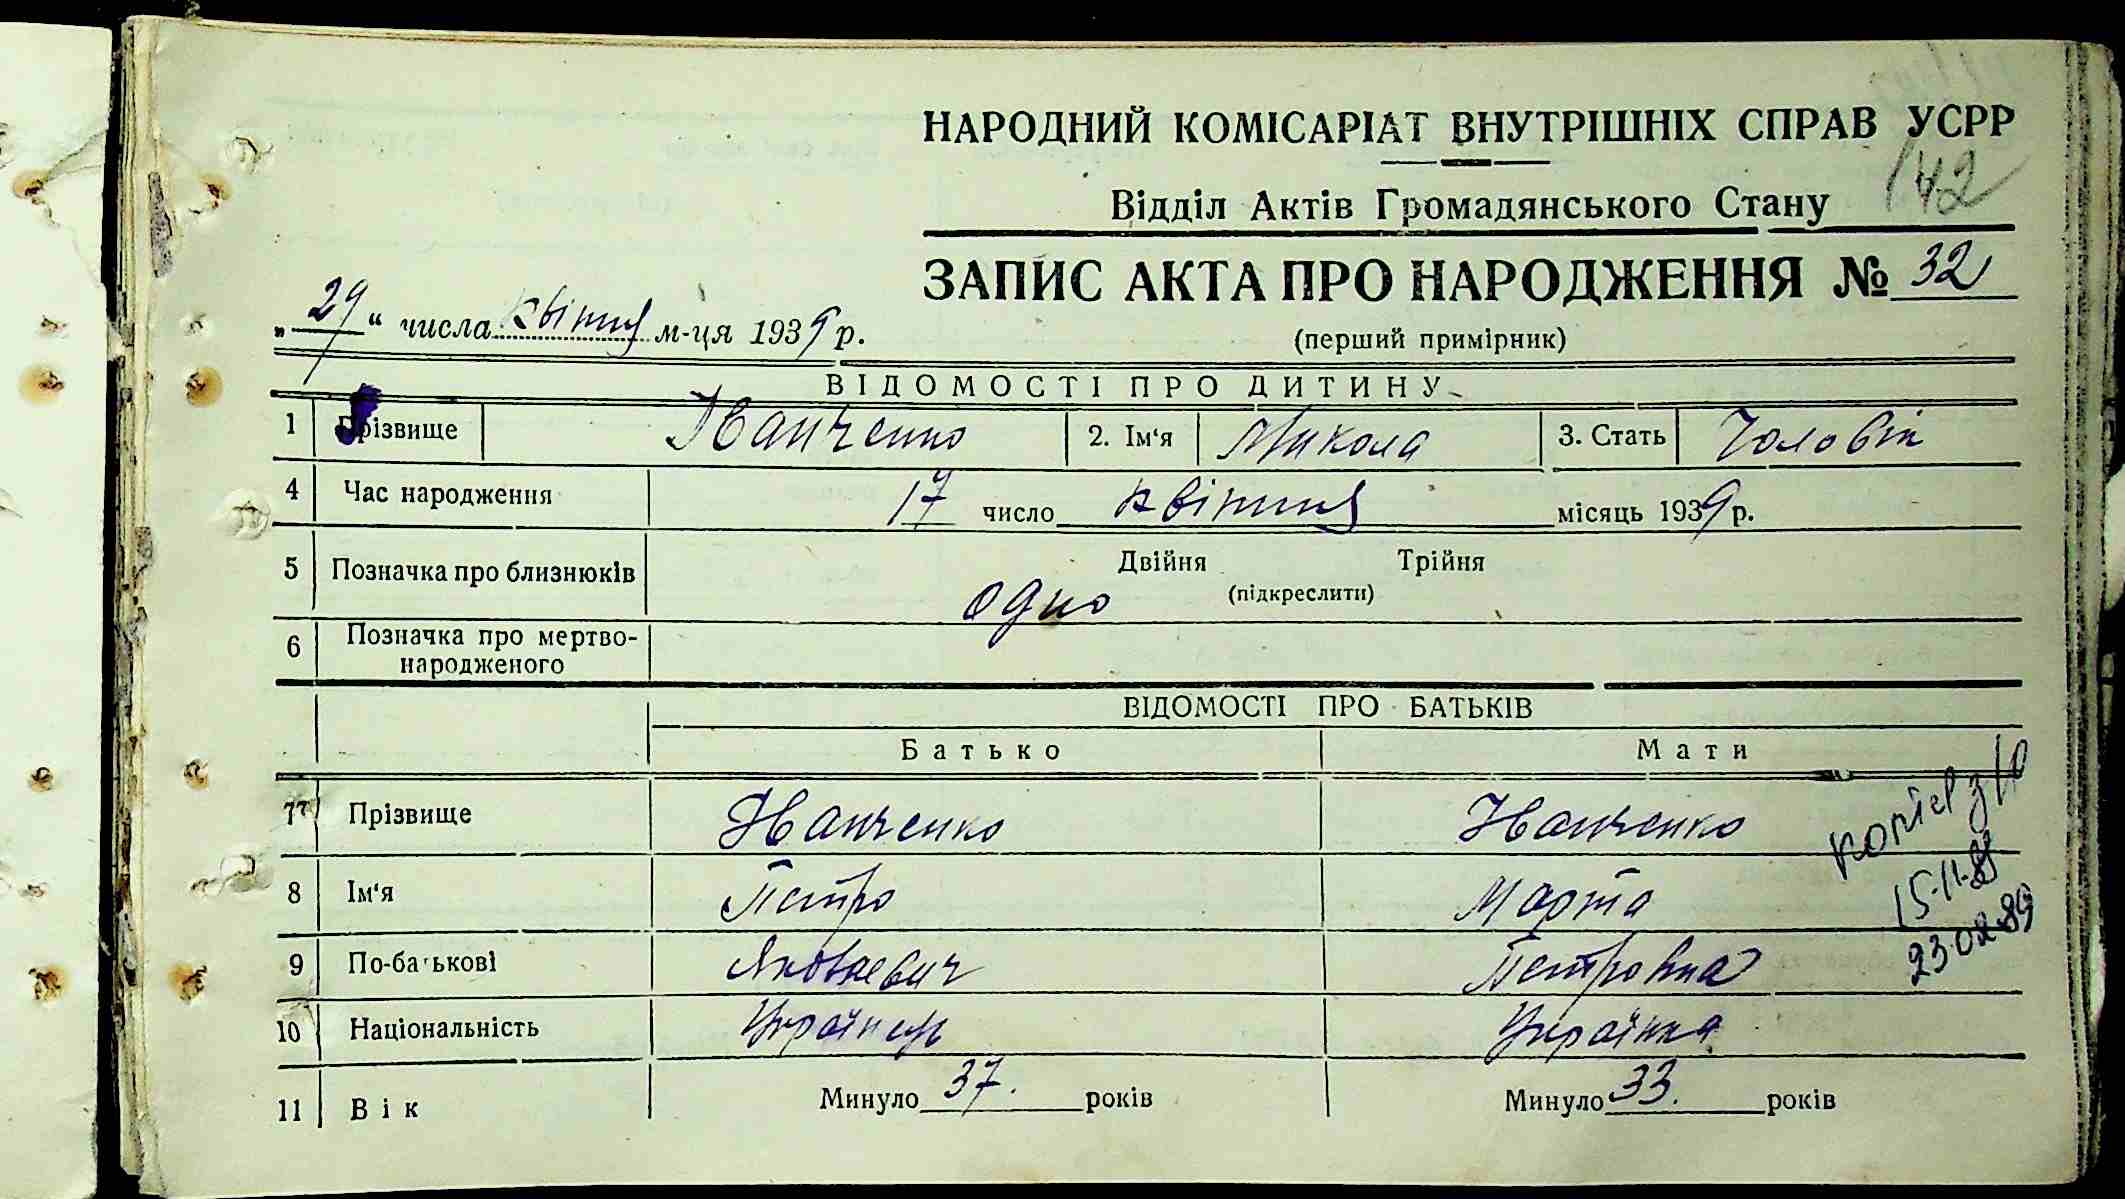 НАРОДНИЙ КОМІСАРІАТ ВНУТРІШНІХ СПРАВ УСРР
142
Відділ Актів Громадянського Стану
ЗАПИС АКТА ПРО НАРОДЖЕННЯ № 32
„29“ числа квітня м-ця 1939 р.
(перший примірник)
ВІДОМОСТІ ПРО ДИТИНУ
1 Прізвище Іванченко 2. Ім‘я Микола 3. Стать Чоловік
4 Час народження 17 число квітня місяць 1939 р.
5 Позначка про близнюків Двійня Трійня
одно (підкреслити)
6 Позначка про мертво-
народженого
ВІДОМОСТІ ПРО БАТЬКІВ
Батько Мати
7 Прізвище Іванченко Іванченко
8 Ім‘я Петро Марта
15-11-88
9 По-батькові Яковлевич Петровна
23.02.89
10 Національність Українець Українка
11 Вік Минуло 37. років Минуло 33. років